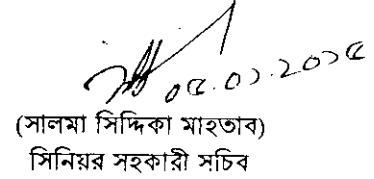 ০৫.০১.২০১৫
(সালমা সিদ্দিকা মাহতাব)
সিনিয়র সহকারী সচিব